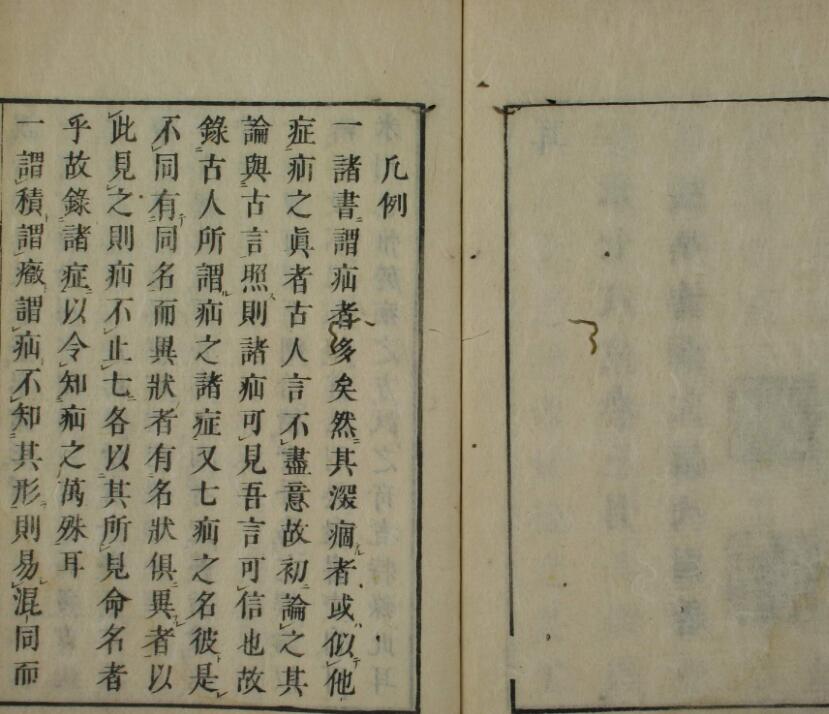 凡例
一諸書謂疝者多矣然其深痼者或似他
症疝之眞者古人言不盡意故初論之其
論與古言照則諸疝可見吾言可信也故
錄古人所謂疝之諸症又七疝之名彼是
不同有同名而異狀者有名狀俱異者以
此見之則疝不止七各以其所見命名者
乎故錄諸症以令知疝之萬殊耳
一謂積謂癥謂疝不知其形則易混同而